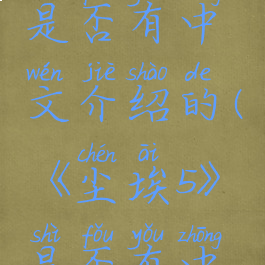 是否有中
wén jiè shào de
文介绍的(
chén āi
《尘埃5》
shì fǒu yǒu zhōng
是否有中